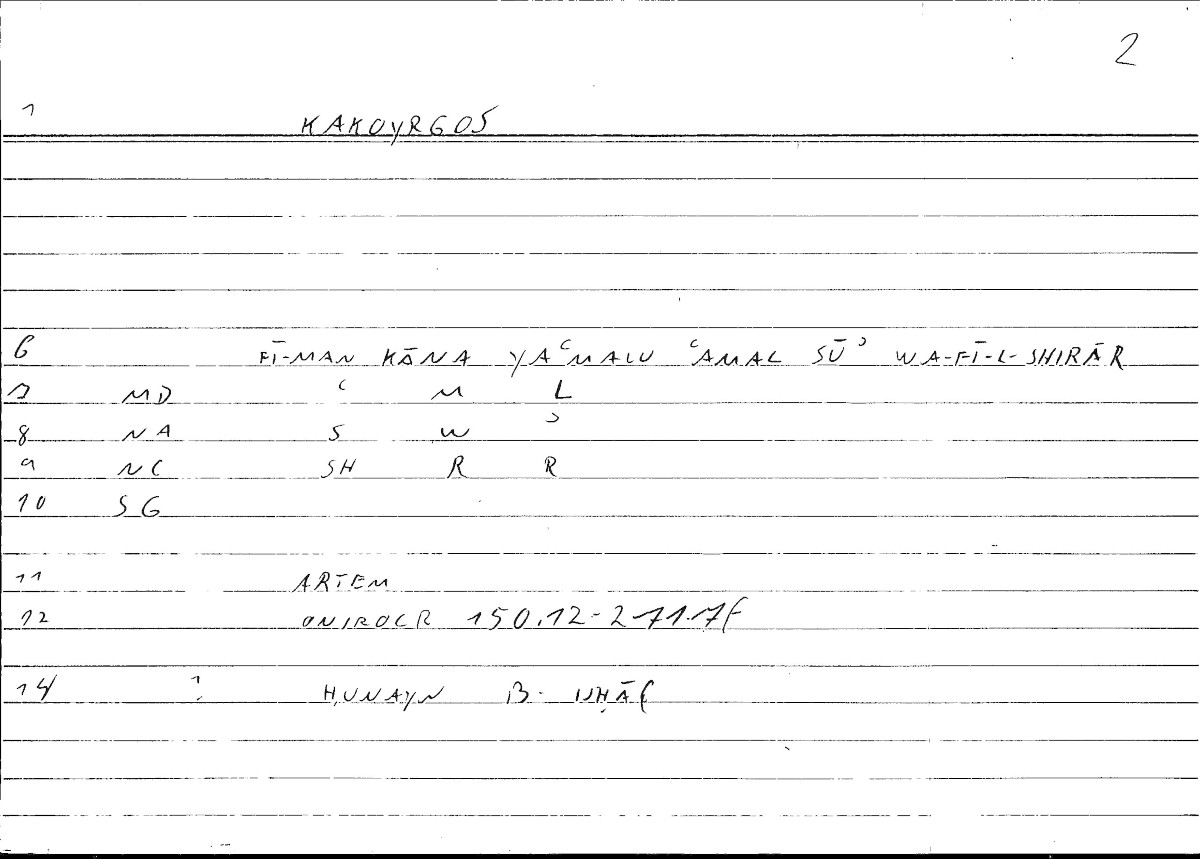 2
1 KAKOYRGOS
6 FĪ-MAN KĀNA YAʿMALU ʿAMAL SŪʾ WA-FĪ-L-SHIRĀR
7 MD ʿ M L
8 NA S W ʾ
9 NC SH R R
10 SG
11 ARTEM
12 ONIROCR 150.12-271.7f
14 ? ḤUNAYN B.